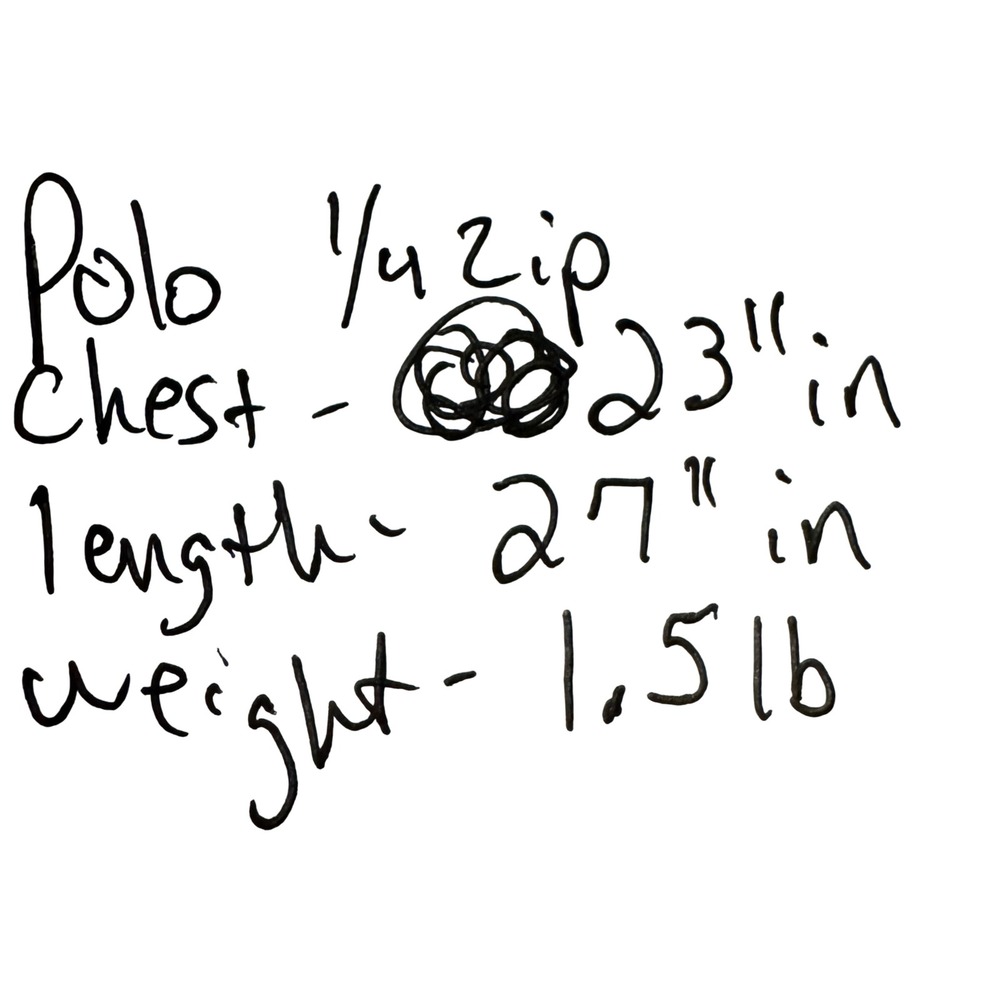 Polo 1/4 Zip
Chest - 23" in
length - 27" in
weight - 1.5 lb